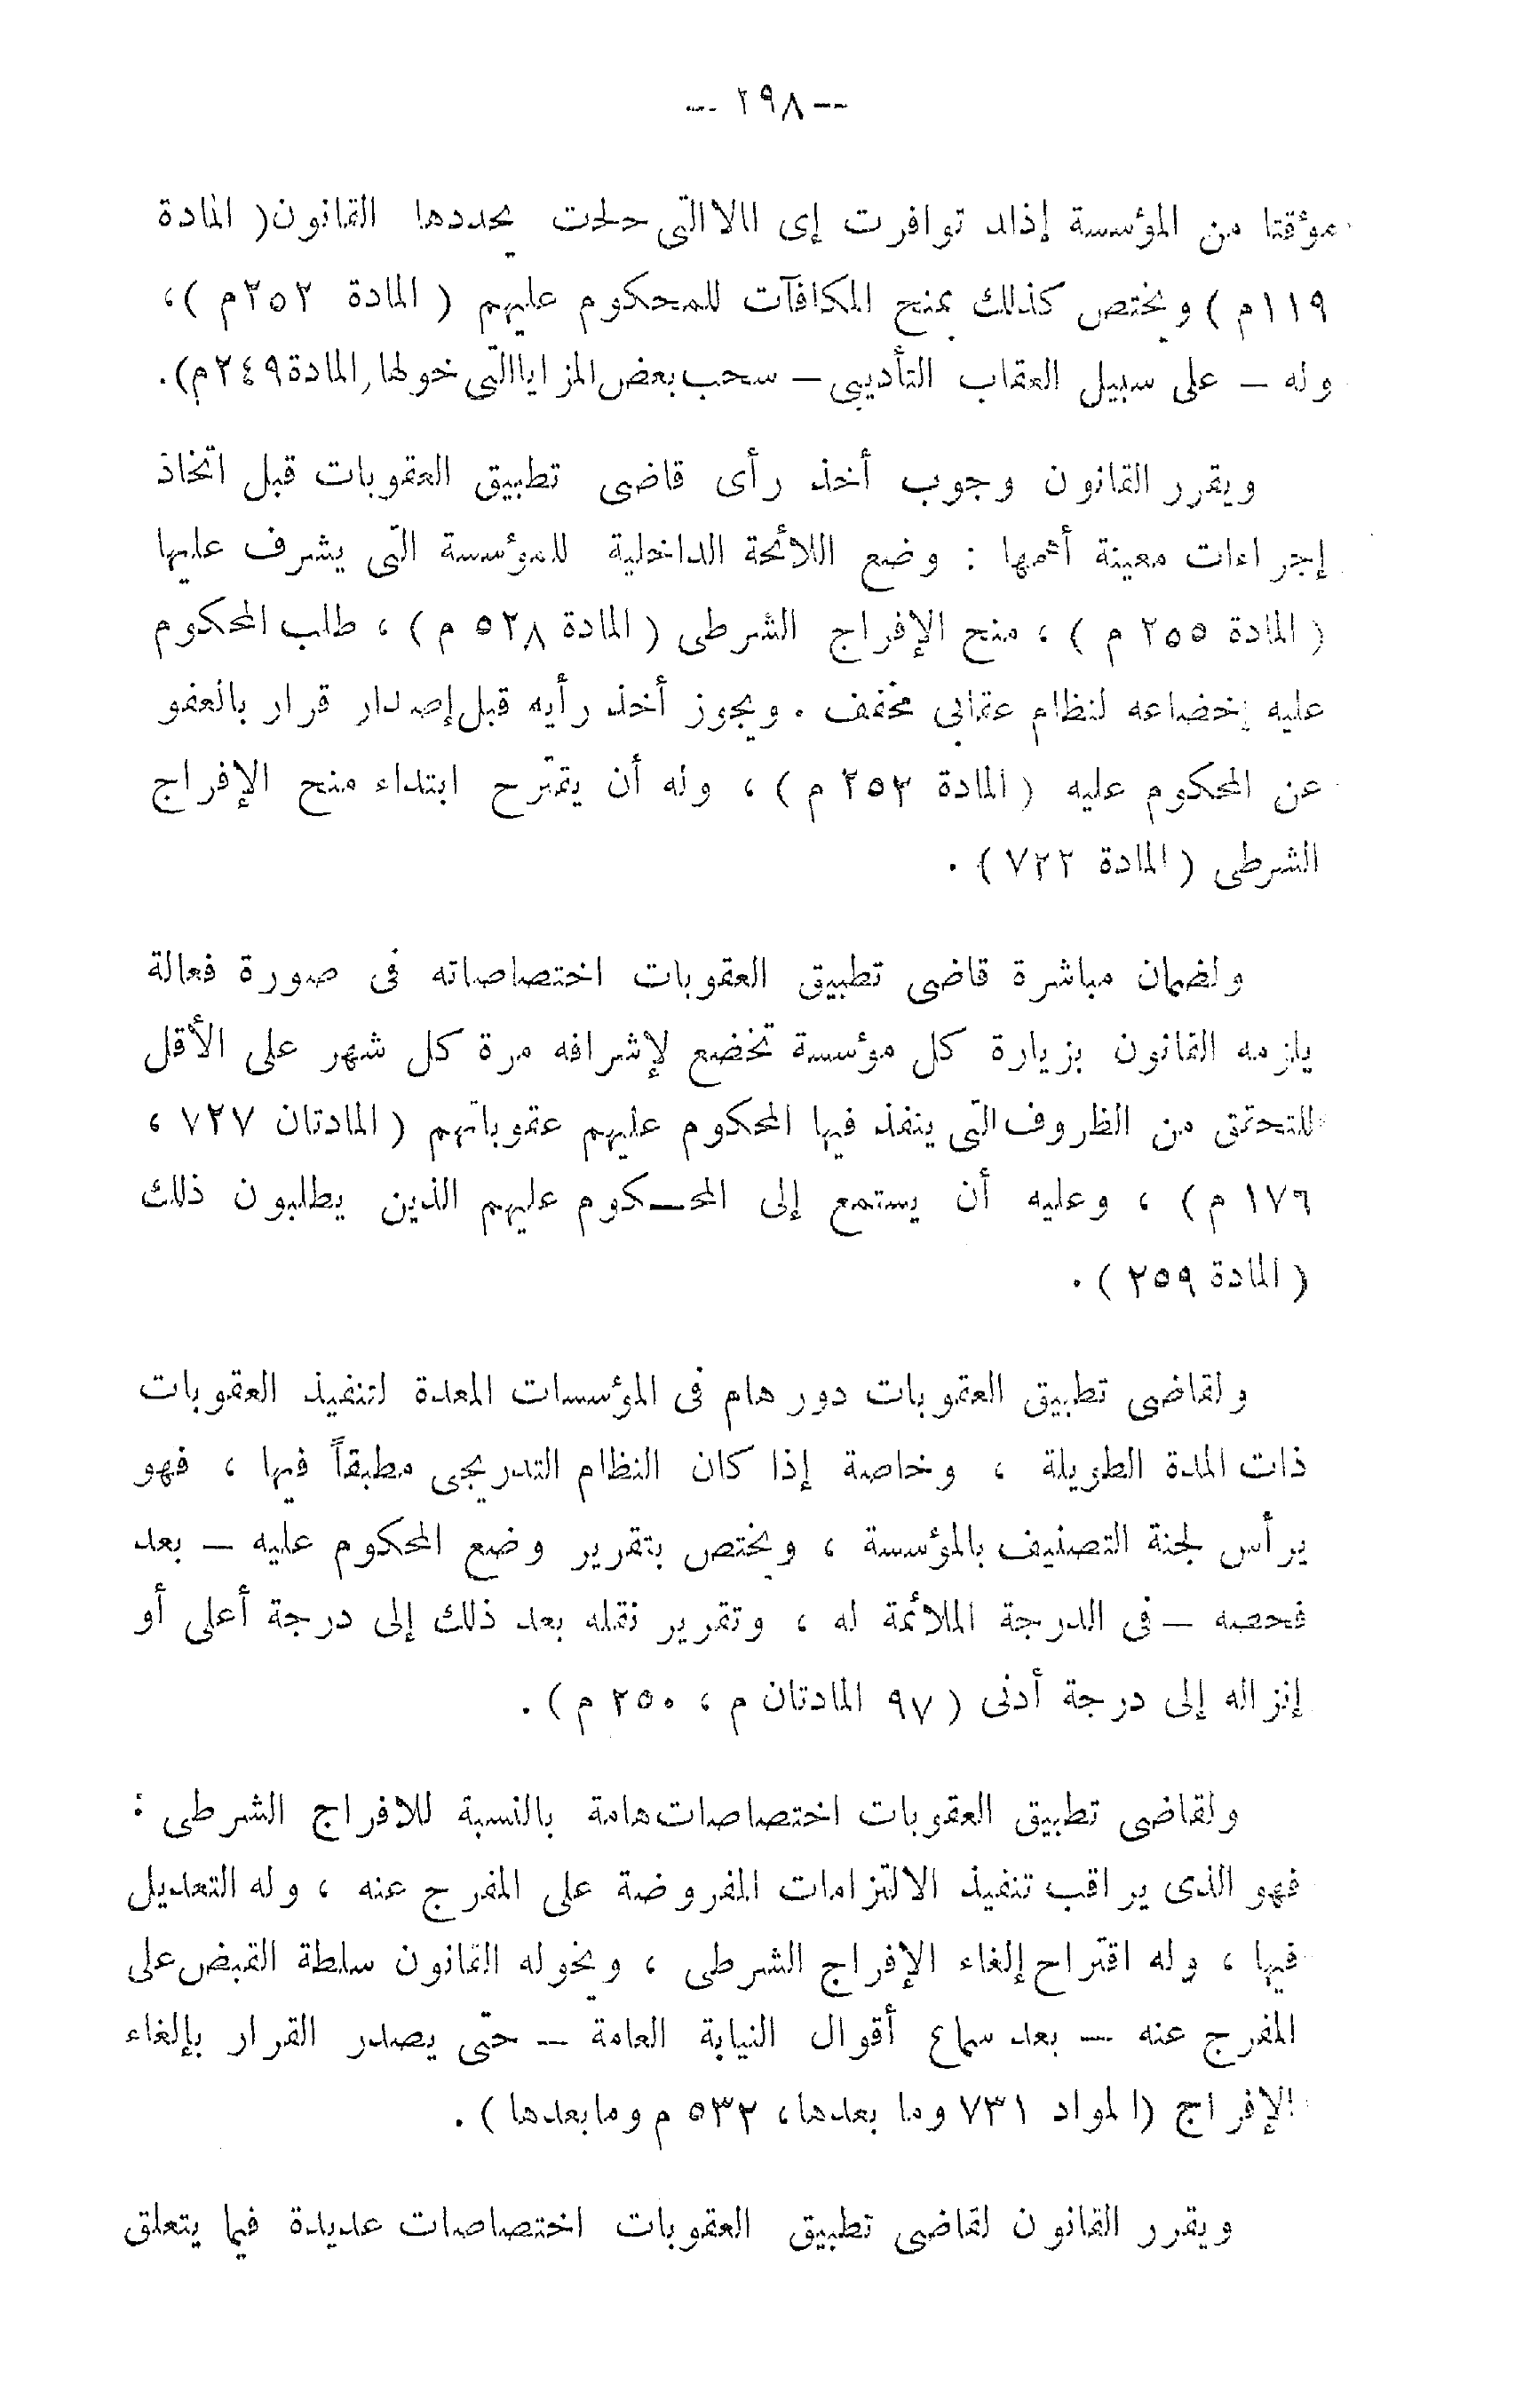 -- ٢٩٨ --
مؤقتا من المؤسسة إذالد توافرت إى الالالتى حلحت يحددها القانون( المادة
١١٩م ) ويختص كذلك بمنح المكافآت للمحكوم عليهم ( المادة ٢٥٢م )،
وله – على سبيل العقاب التأديبى – سحب بعض المزايا التى خولها, المادة ٢٤٩م).
ويقرر القانون وجوب أخذ رأى قاضى تطبيق العقوبات قبل اتخاذ
إجراءات معينة أهمها : وضع اللائحة الداخلية للمؤسسة التى يشرف عليها
( المادة ٢٥٥ م ) ، منح الإفراج الشرطى ( المادة ٥٢٨ م ) ، طلب المحكوم
عليه إخضاعه لنظام عقابى مخفف . ويجوز أخذ رأيه قبل إصدار قرار بالعفو
عن المحكوم عليه ( المادة ٢٥٣ م ) ، وله أن يقترح ابتداء منح الإفراج
الشرطى ( المادة ٧٢٢ ) .
ولضمان مباشرة قاضى تطبيق العقوبات اختصاصاته فى صورة فعالة
يلزمه القانون بزيارة كل مؤسسة تخضع لإشرافه مرة كل شهر على الأقل
للتحقق من الظروف التى ينفذ فيها المحكوم عليهم عقوباتهم ( المادتان ٧٢٧ ،
١٧٦ م ) ، وعليه أن يستمع إلى المحـكوم عليهم الذين يطلبون ذلك
( المادة ٢٥٩ ) .
ولقاضى تطبيق العقوبات دور هام فى المؤسسات المعدة لتنفيذ العقوبات
ذات المدة الطويلة ، وخاصة إذا كان النظام التدريجى مطبقاً فيها ، فهو
يرأس لجنة التصنيف بالمؤسسة ، ويختص بتقرير وضع المحكوم عليه – بعد
فحصه – فى الدرجة الملائمة له ، وتقرير نقله بعد ذلك إلى درجة أعلى أو
إنزاله إلى درجة أدنى ( ٩٧ المادتان م ، ٢٥٠ م ) .
ولقاضى تطبيق العقوبات اختصاصات هامة بالنسبة للافراج الشرطى :
فهو الذى يراقب تنفيذ الالتزامات المفروضة على المفرج عنه ، وله التعديل
فيها ، وله اقتراح إلغاء الإفراج الشرطى ، ويخوله القانون سلطة القبض على
المفرج عنه – بعد سماع أقوال النيابة العامة – حتى يصدر القرار بإلغاء
الإفراج (المواد ٧٣١ وما بعدها، ٥٣٢ م ومابعدها ) .
ويقرر القانون لقاضى تطبيق العقوبات اختصاصات عديدة فيما يتعلق